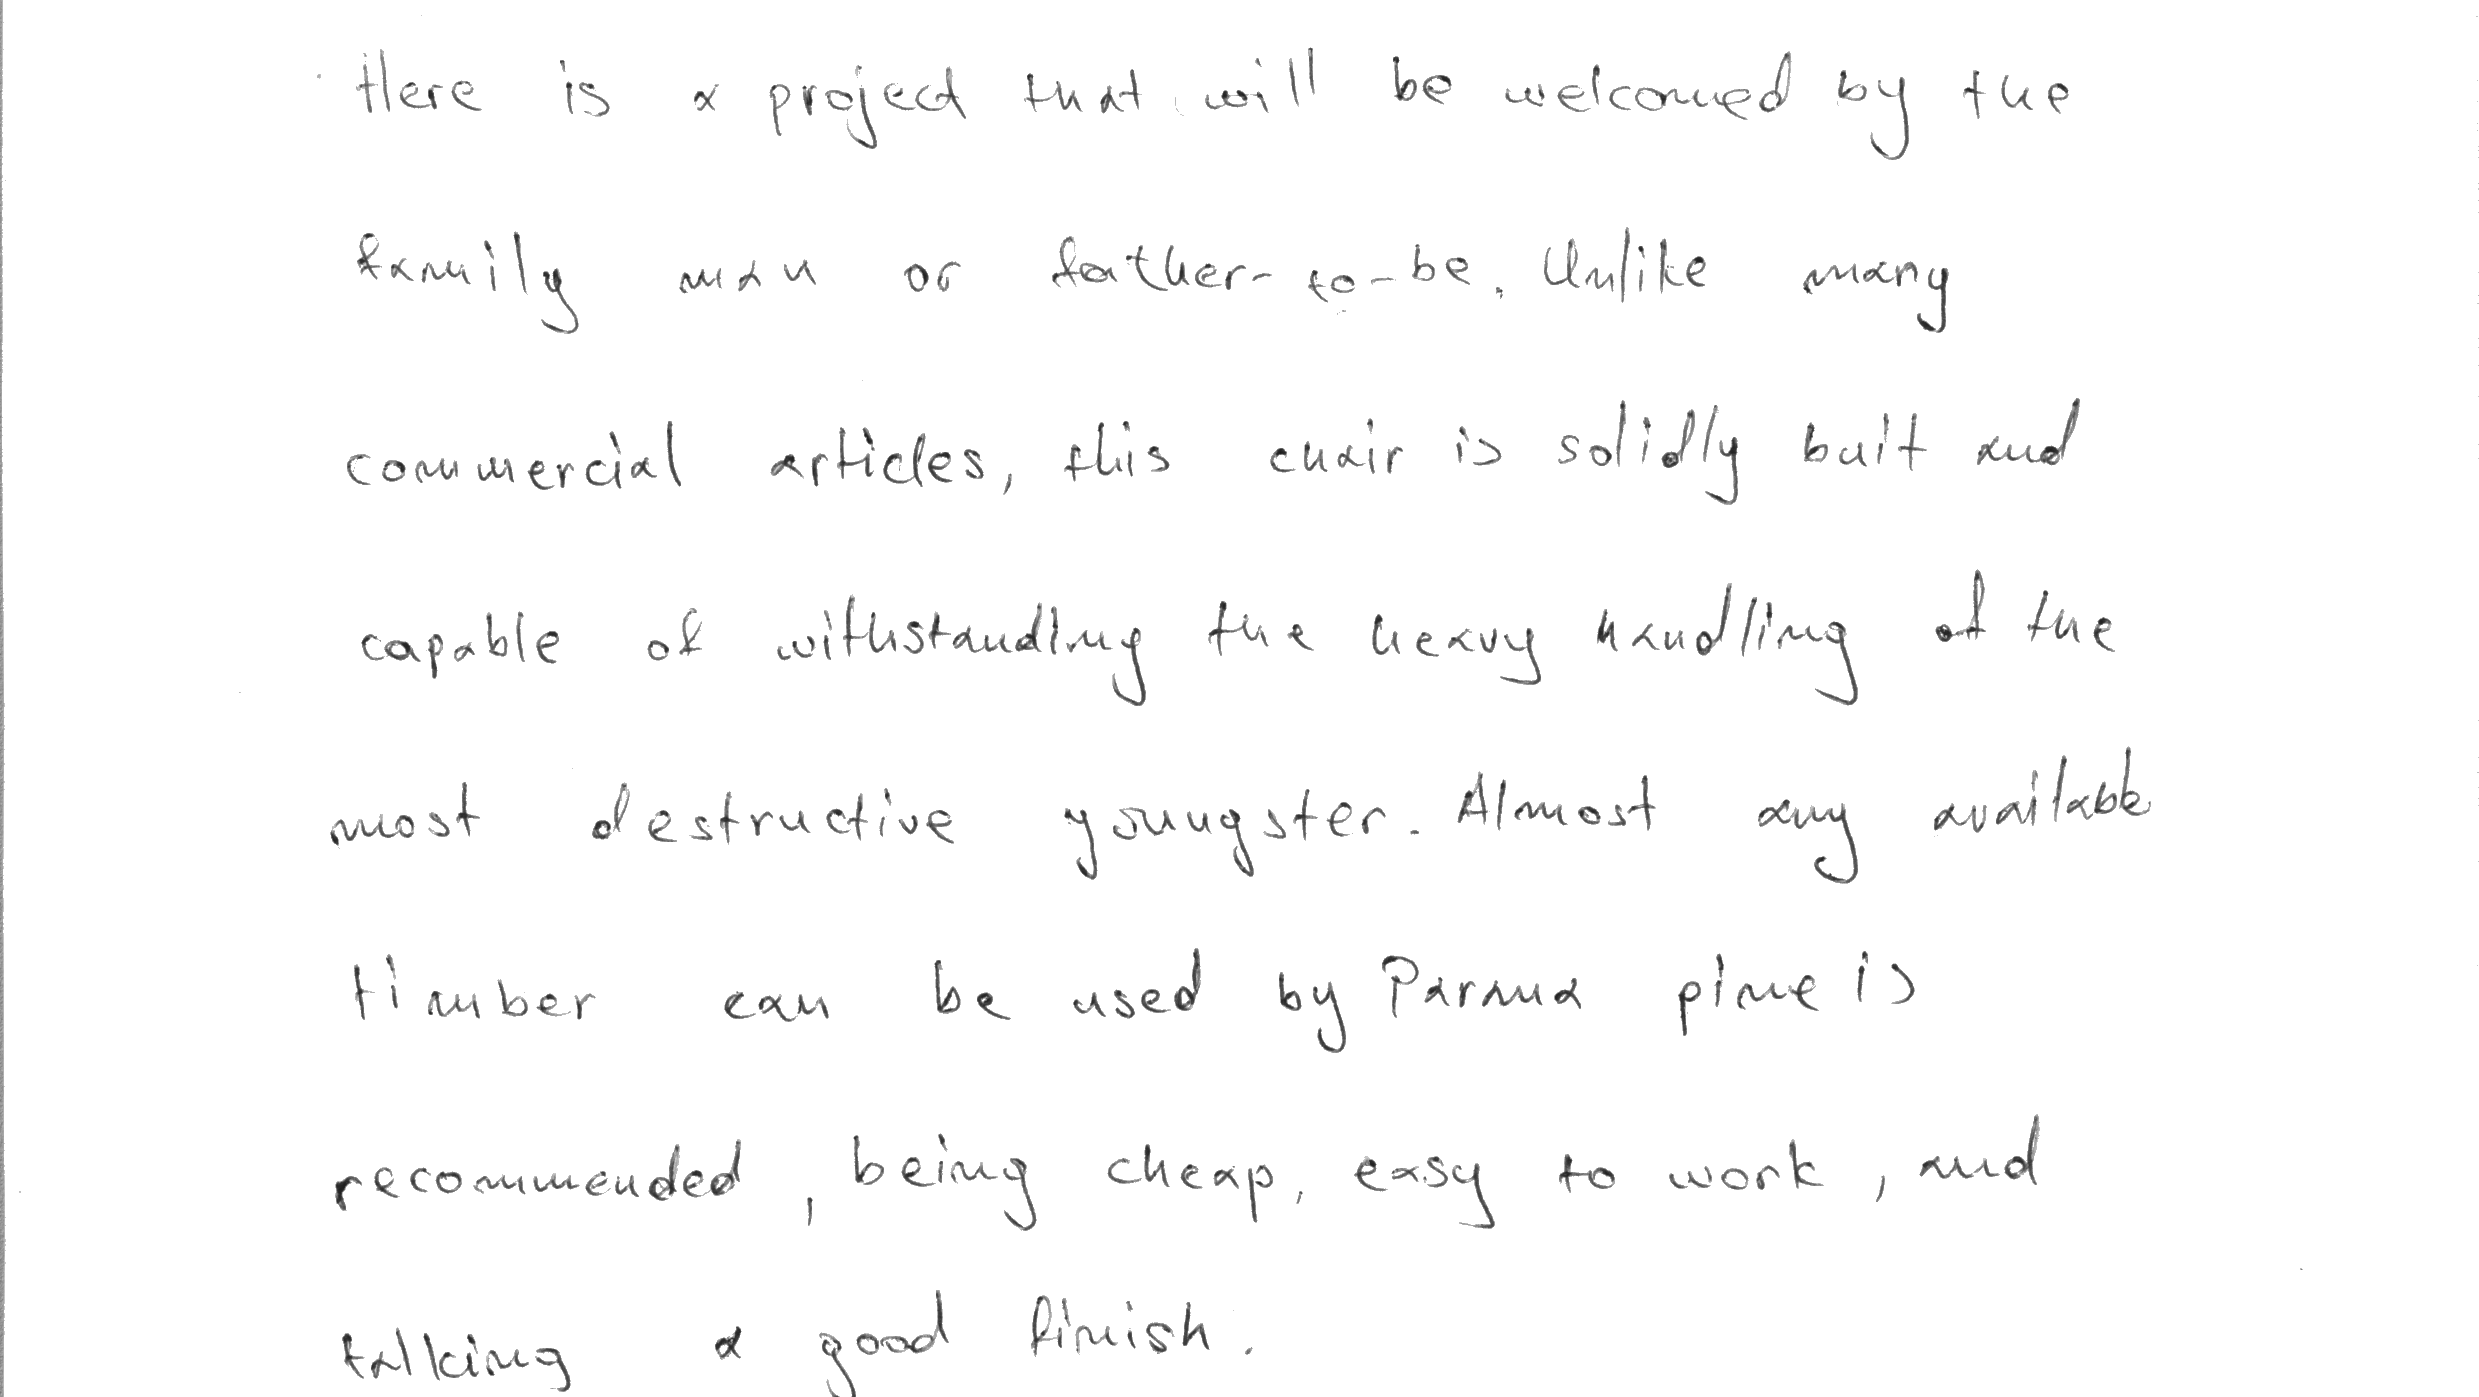 Here is a project that will be welcomed by the
family man or father-to-be. Unlike many
commercial articles, this chair is solidly buit and
capable of withstanding the heavy handling of the
most destructive youngster. Almost any available
timber can be used by Parma pine is
recommended, being cheap, easy to work, and
talking a good finish.